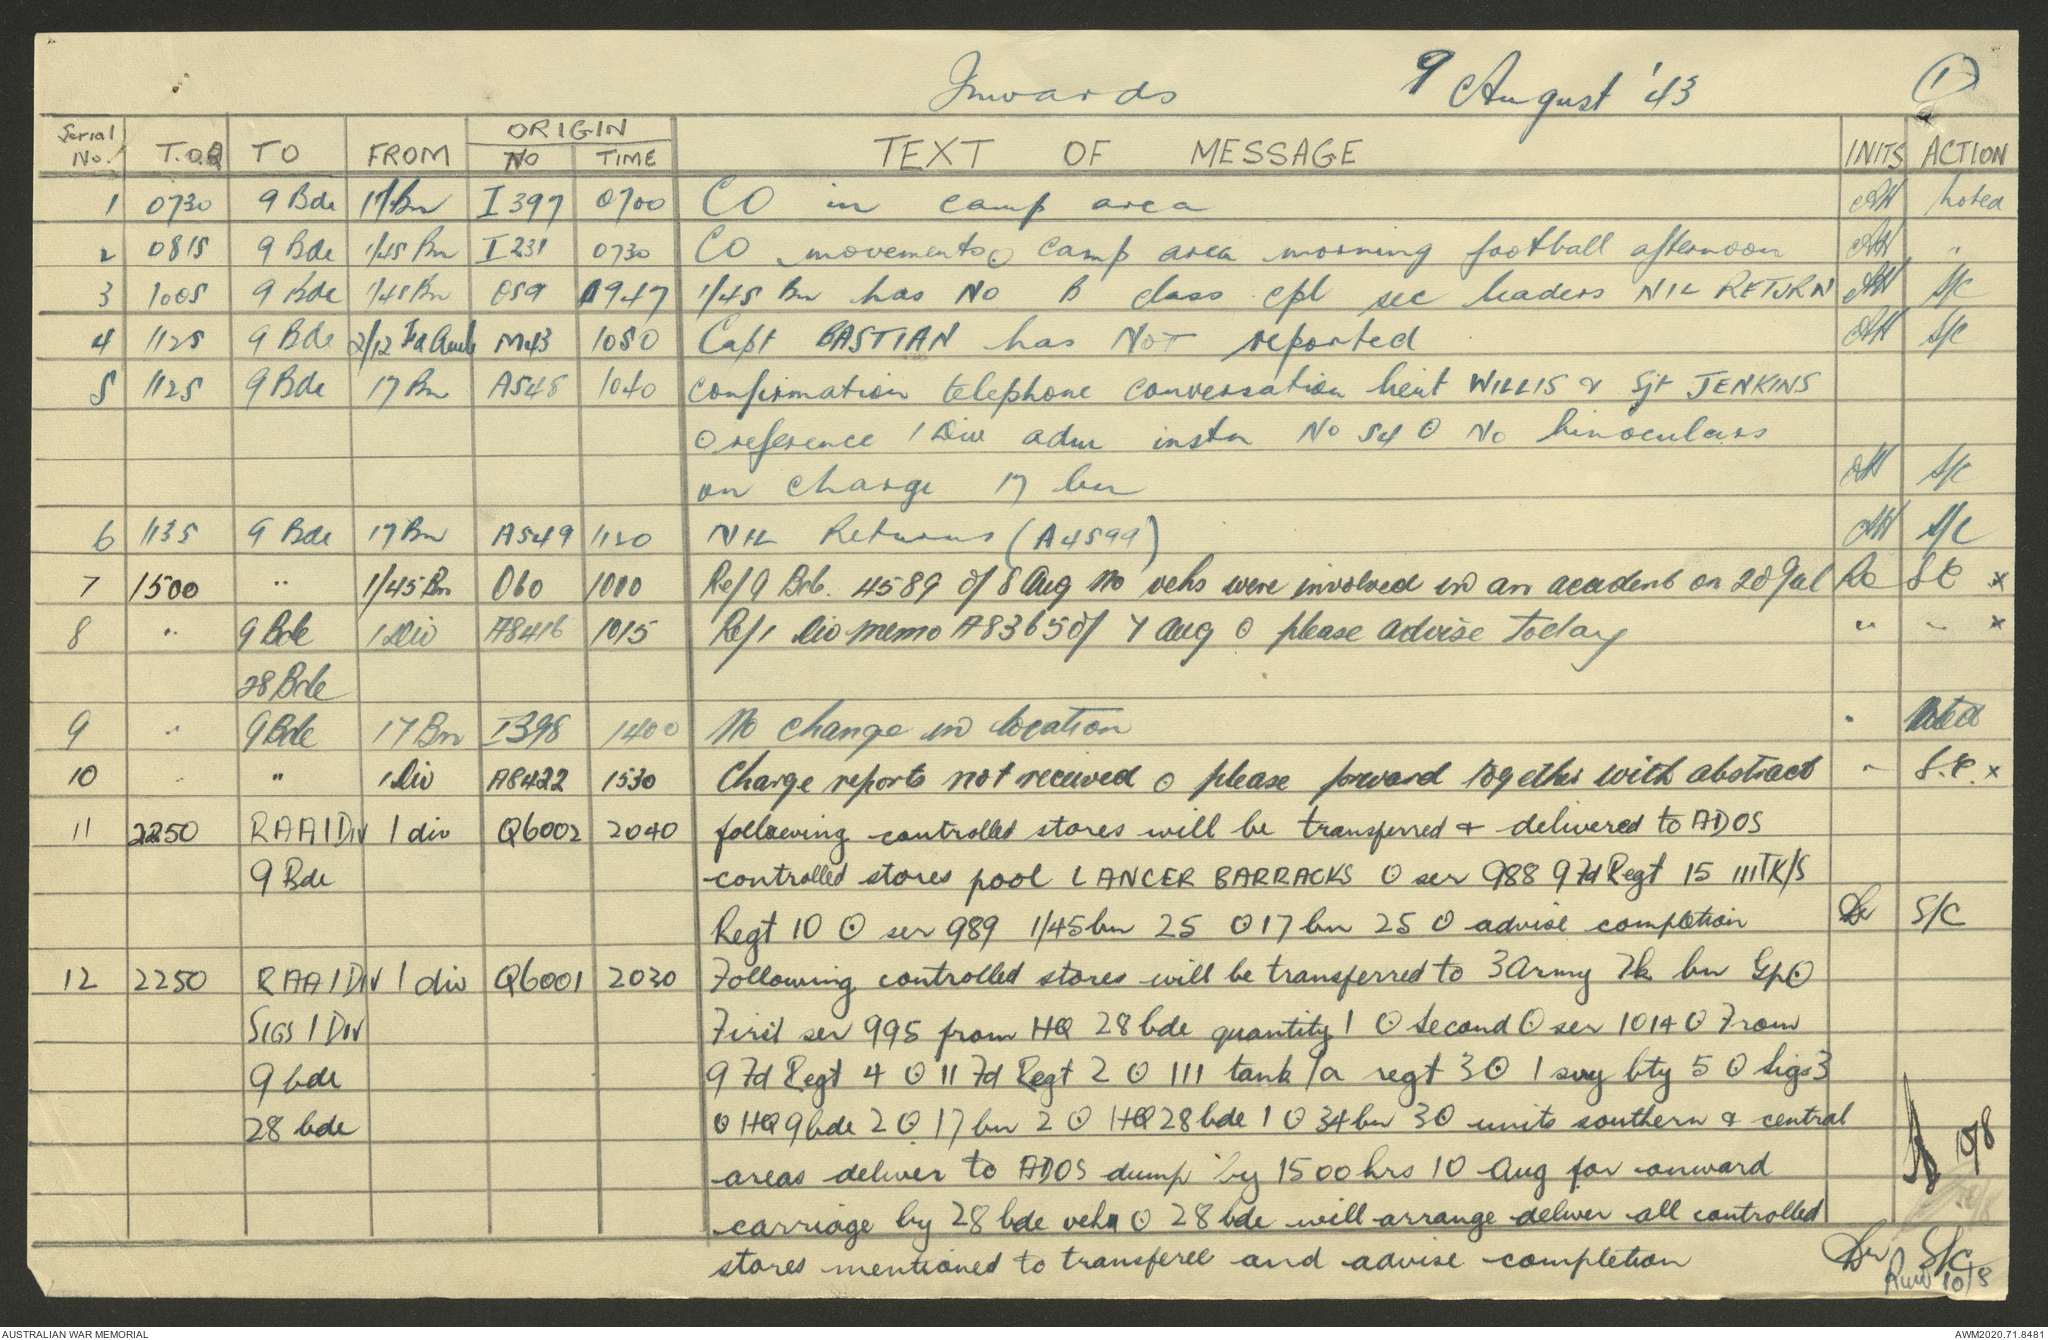 Inwards 9 August '43 1
Serial No. T.O.R TO FROM ORIGIN NO TIME TEXT OF MESSAGE INITS ACTION
1 0730 9 Bde 17 Bn I397 0700 CO in camp area noted
2 0815 9 Bde 1/45 Bn I231 0730 CO movements ⊙ camp area morning football afternoon "
3 1005 9 Bde 1/45 Bn O59 0947 1/45 Bn has NO B class cpl sec leaders NIL RETURN S/C
4 1125 9 Bde 2/12 Fd Amb M43 1050 Capt BASTIAN has NOT reported S/C
5 1125 9 Bde 17 Bn A548 1040 Confirmation telephone conversation lieut WILLIS & Sjt JENKINS
⊙ reference 1 Div adm instn No 54 ⊙ No binoculars
on charge 17 bn S/C
6 1135 9 Bde 17 Bn A549 1120 NIL Returns (A4599) S/C
7 1500 " 1/45 Bn O60 1000 Ref 9 Bde 4589 of 8 Aug no vehs were involved in an accident on 28 Jul SC x
8 " 9 Bde 1 Div A8416 1015 Ref 1 Div memo A8365 of 7 Aug ⊙ please advise today " " x
28 Bde
9 " 9 Bde 17 Bn I398 1400 No change in location " Noted
10 " " 1 Div A8422 1530 Charge reports not received ⊙ please forward together with abstract " S.C. x
11 2250 RAA 1 DIV 1 div Q6002 2040 following controlled stores will be transferred & delivered to ADOS
9 Bde controlled stores pool LANCER BARRACKS ⊙ ser 988 9 Fd Regt 15 111 TK/S
Regt 10 ⊙ ser 989 1/45 bn 25 ⊙ 17 bn 25 ⊙ advise completion S/C
12 2250 RAA 1 DIV 1 div Q6001 2030 Following controlled stores will be transferred to 3 Army Tk bn Gp ⊙
SIGS 1 DIV First ser 995 from HQ 28 bde quantity 1 ⊙ second ⊙ ser 1014 ⊙ From
9 bde 9 Fd Regt 4 ⊙ 11 Fd Regt 2 ⊙ 111 tank/a regt 3 ⊙ 1 svy bty 5 ⊙ Sigs 3
28 bde ⊙ HQ 9 bde 2 ⊙ 17 bn 2 ⊙ HQ 28 bde 1 ⊙ 34 bn 3 ⊙ units southern & central
areas deliver to ADOS dump by 1500 hrs 10 Aug for onward 10/8
carriage by 28 bde vehs ⊙ 28 bde will arrange deliver all controlled
stores mentioned to transferee and advise completion S/C
10/8
AUSTRALIAN WAR MEMORIAL AWM2020.71.8481